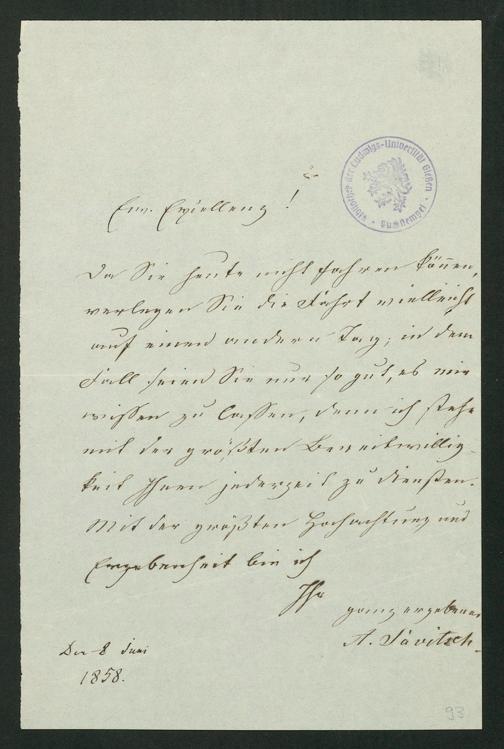 Bibliothek der Ludwigs-Universität Gießen
Ew. Exzellenz!
Da Sie heute nicht fahren können,
verlegen Sie die Fahrt vielleicht
auf einen andern Tag; in dem
Fall seien Sie nur so gut, es mir
wissen zu lassen, denn ich stehe
mit der größten Bereitwillig-
keit Ihnen jederzeit zu Diensten.
Mit der größten Hochachtung und
Ergebenheit bin ich
Ihr
ganz ergebener
A. Savitsch.
Den 8 Juni
1858.
93